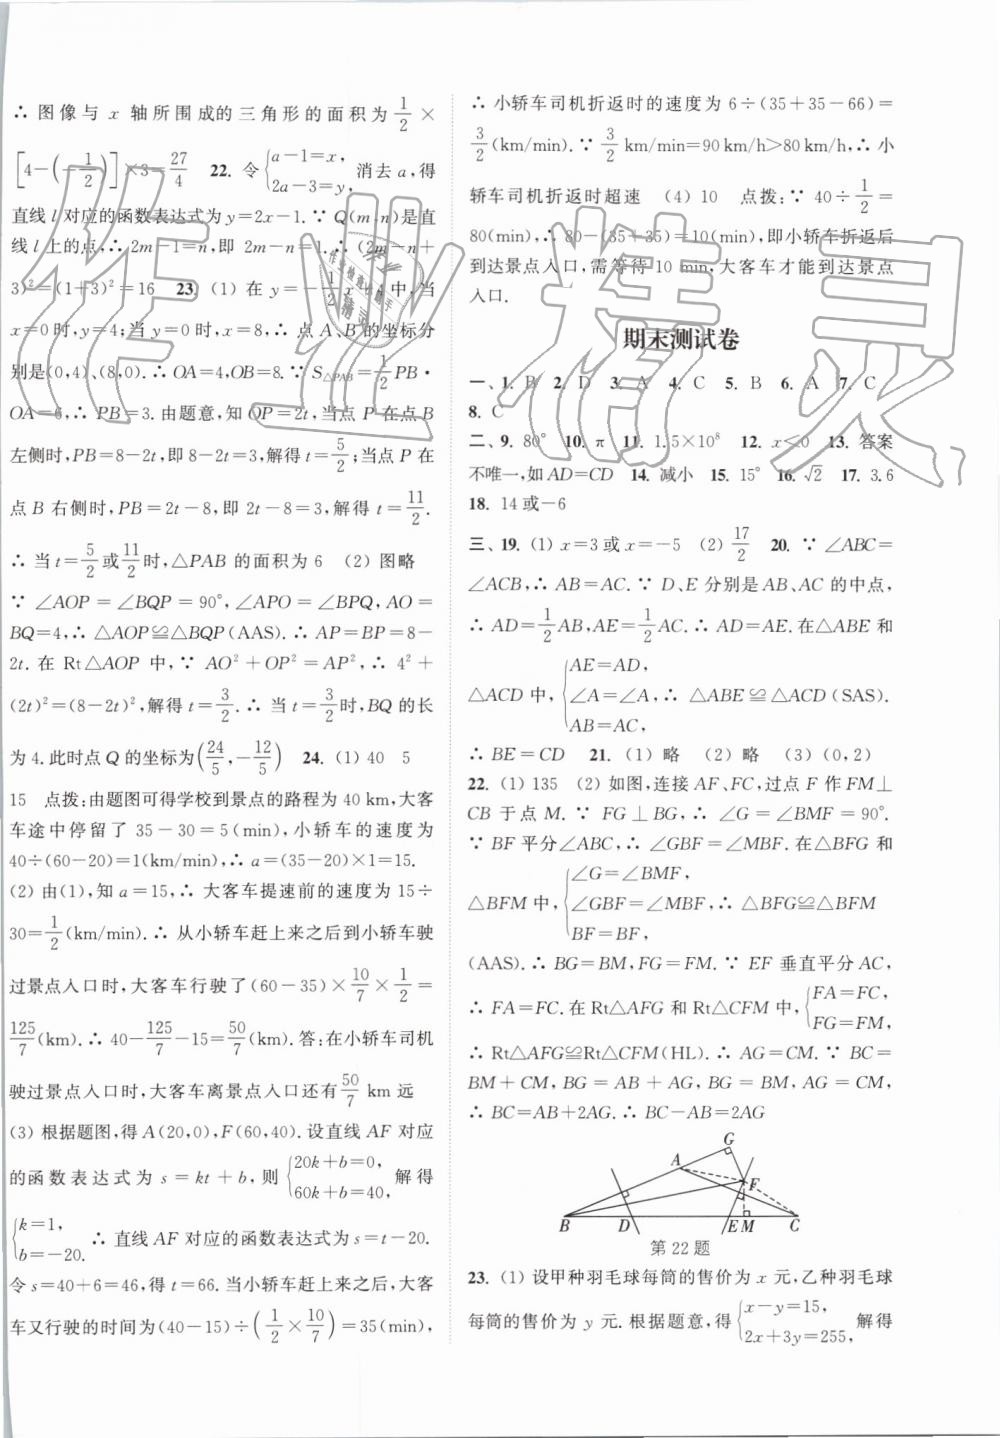 ∴ 图像与 x 轴所围成的三角形的面积为 1/2 ×
[4-(-1/2)]×3=27/4 22. 令 {a-1=x, 2a-3=y, 消去a,得
直线 l 对应的函数表达式为 y=2x-1.∵ Q(m,n)是直
线 l 上的点,∴ 2m-1=n,即 2m-n=1.∴ (2m-n+
3)²=(1+3)²=16 23. (1) 在 y=-1/2x+4 中,当
x=0时,y=4;当 y=0 时,x=8,∴ 点 A、B 的坐标分
别是(0,4)、(8,0).∴ OA=4,OB=8.∵ S△PAB=1/2PB·
OA=6,∴ PB=3.由题意,知 OP=2t,当点 P 在点 B
左侧时,PB=8-2t,即 8-2t=3,解得 t=5/2;当点 P 在
点 B 右侧时,PB=2t-8,即 2t-8=3,解得 t=11/2.
∴ 当 t=5/2或11/2时,△PAB 的面积为 6 (2) 图略
∵ ∠AOP=∠BQP=90°,∠APO=∠BPQ,AO=
BQ=4,∴ △AOP≌△BQP(AAS).∴ AP=BP=8-
2t.在 Rt△AOP 中,∵ AO²+OP²=AP²,∴ 4²+
(2t)²=(8-2t)²,解得 t=3/2.∴ 当 t=3/2时,BQ 的长
为 4.此时点 Q 的坐标为(24/5,-12/5) 24. (1) 40 5
15 点拨:由题图可得学校到景点的路程为 40 km,大客
车途中停留了 35-30=5(min),小轿车的速度为
40÷(60-20)=1(km/min),∴ a=(35-20)×1=15.
(2) 由(1),知 a=15,∴ 大客车提速前的速度为 15÷
30=1/2(km/min).∴ 从小轿车赶上来之后到小轿车驶
过景点入口时,大客车行驶了(60-35)×10/7×1/2=
125/7(km).∴ 40-125/7-15=50/7(km).答:在小轿车司机
驶过景点入口时,大客车离景点入口还有50/7 km 远
(3) 根据题图,得 A(20,0),F(60,40).设直线 AF 对应
的函数表达式为 s=kt+b,则 {20k+b=0, 60k+b=40, 解得
{k=1, b=-20. ∴ 直线 AF 对应的函数表达式为 s=t-20.
令 s=40+6=46,得 t=66.当小轿车赶上来之后,大客
车又行驶的时间为(40-15)÷(1/2×10/7)=35(min),
∴ 小轿车司机折返时的速度为 6÷(35+35-66)=
3/2(km/min).∵ 3/2 km/min=90 km/h>80 km/h,∴ 小
轿车司机折返时超速 (4) 10 点拨:∵ 40÷1/2=
80(min),∴ 80-(35+35)=10(min),即小轿车折返后
到达景点入口,需等待 10 min,大客车才能到达景点
入口.
期末测试卷
一、1. B 2. D 3. A 4. C 5. B 6. A 7. C
8. C
二、9. 80° 10. π 11. 1.5×10⁸ 12. x<0 13. 答案
不唯一,如 AD=CD 14. 减小 15. 15° 16. √2 17. 3.6
18. 14 或-6
三、19. (1) x=3 或 x=-5 (2) 17/2 20. ∵ ∠ABC=
∠ACB,∴ AB=AC.∵ D、E 分别是 AB、AC 的中点,
∴ AD=1/2AB,AE=1/2AC.∴ AD=AE.在△ABE 和
△ACD 中,{AE=AD, ∠A=∠A, AB=AC, ∴ △ABE≌△ACD(SAS).
∴ BE=CD 21. (1) 略 (2) 略 (3) (0,2)
22. (1) 135 (2) 如图,连接 AF、FC,过点 F 作 FM⊥
CB 于点 M.∵ FG⊥BG,∴ ∠G=∠BMF=90°.
∵ BF 平分∠ABC,∴ ∠GBF=∠MBF.在△BFG 和
△BFM 中,{∠G=∠BMF, ∠GBF=∠MBF, BF=BF, ∴ △BFG≌△BFM
(AAS).∴ BG=BM,FG=FM.∵ EF 垂直平分 AC,
∴ FA=FC.在 Rt△AFG 和 Rt△CFM 中,{FA=FC, FG=FM,
∴ Rt△AFG≌Rt△CFM(HL).∴ AG=CM.∵ BC=
BM+CM,BG=AB+AG,BG=BM,AG=CM,
∴ BC=AB+2AG.∴ BC-AB=2AG
G
A
F
B D E M C
第 22 题
23. (1) 设甲种羽毛球每筒的售价为 x 元,乙种羽毛球
每筒的售价为 y 元.根据题意,得 {x-y=15, 2x+3y=255, 解得
作业精灵